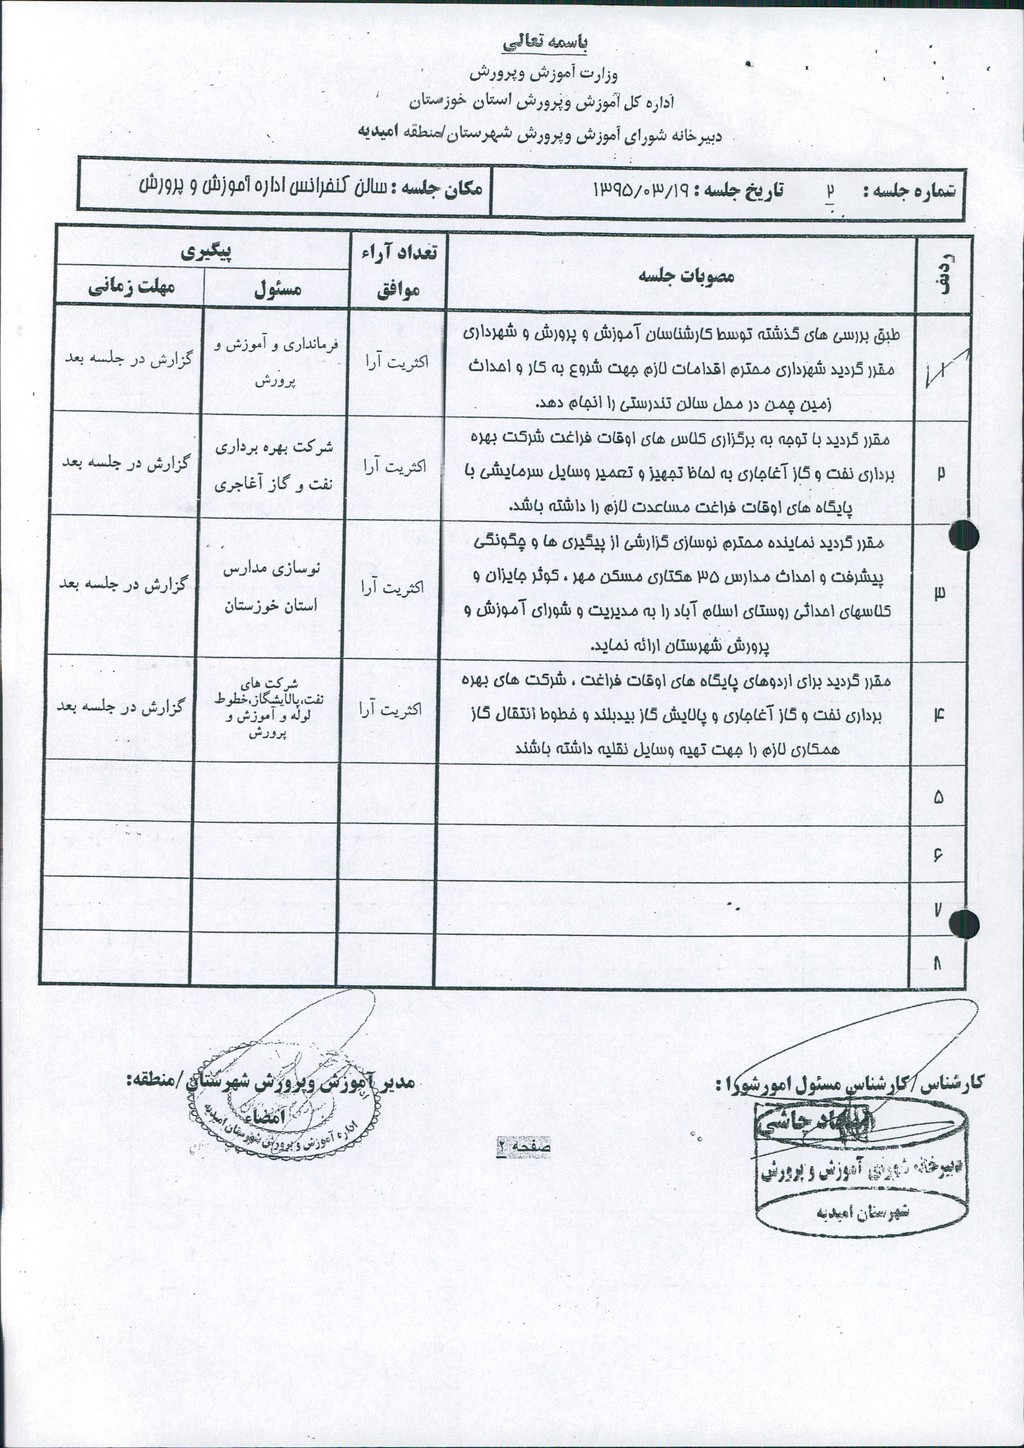 باسمه تعالی
وزارت آموزش وپرورش
اداره کل آموزش وپرورش استان خوزستان
دبیرخانه شورای آموزش وپرورش شهرستان/منطقه امیدیه
شماره جلسه : ۲ تاریخ جلسه : ۱۳۹۵/۰۳/۱۹ مکان جلسه : سالن کنفرانس اداره آموزش و پرورش
ردیف مصوبات جلسه تعداد آراء موافق پیگیری
مسئول مهلت زمانی
۱ طبق بررسی های گذشته توسط کارشناسان آموزش و پرورش و شهرداری
مقرر گردید شهرداری محترم اقدامات لازم جهت شروع به کار و احداث
زمین چمن در محل سالن تندرستی را انجام دهد.
اکثریت آرا
فرمانداری و آموزش و
پرورش
گزارش در جلسه بعد
۲ مقرر گردید با توجه به برگزاری کلاس های اوقات فراغت شرکت بهره
برداری نفت و گاز آغاجاری به لحاظ تجهیز و تعمیر وسایل سرمایشی با
پایگاه های اوقات فراغت مساعدت لازم را داشته باشد.
اکثریت آرا
شرکت بهره برداری
نفت و گاز آغاجری
گزارش در جلسه بعد
۳ مقرر گردید نماینده محترم نوسازی گزارشی از پیگیری ها و چگونگی
پیشرفت و احداث مدارس ۳۵ هکتاری مسکن مهر ، کوثر جایزان و
کلاسهای احداثی روستای اسلام آباد را به مدیریت و شورای آموزش و
پرورش شهرستان ارائه نماید.
اکثریت آرا
نوسازی مدارس
استان خوزستان
گزارش در جلسه بعد
۴ مقرر گردید برای اردوهای پایگاه های اوقات فراغت ، شرکت های بهره
برداری نفت و گاز آغاجاری و پالایش گاز بیدبلند و خطوط انتقال گاز
همکاری لازم را جهت تهیه وسایل نقلیه داشته باشند
اکثریت آرا
شرکت های
نفت،پالایشگاز،خطوط
لوله و آموزش و
پرورش
گزارش در جلسه بعد
۵
۶
۷
۸
کارشناس/کارشناس مسئول امورشورا :
چاشی
دبیرخانه شورای آموزش و پرورش
شهرستان امیدیه
مدیر آموزش وپرورش شهرستان/منطقه:
امضاء
اداره آموزش و پرورش شهرستان امیدیه
صفحه ۲